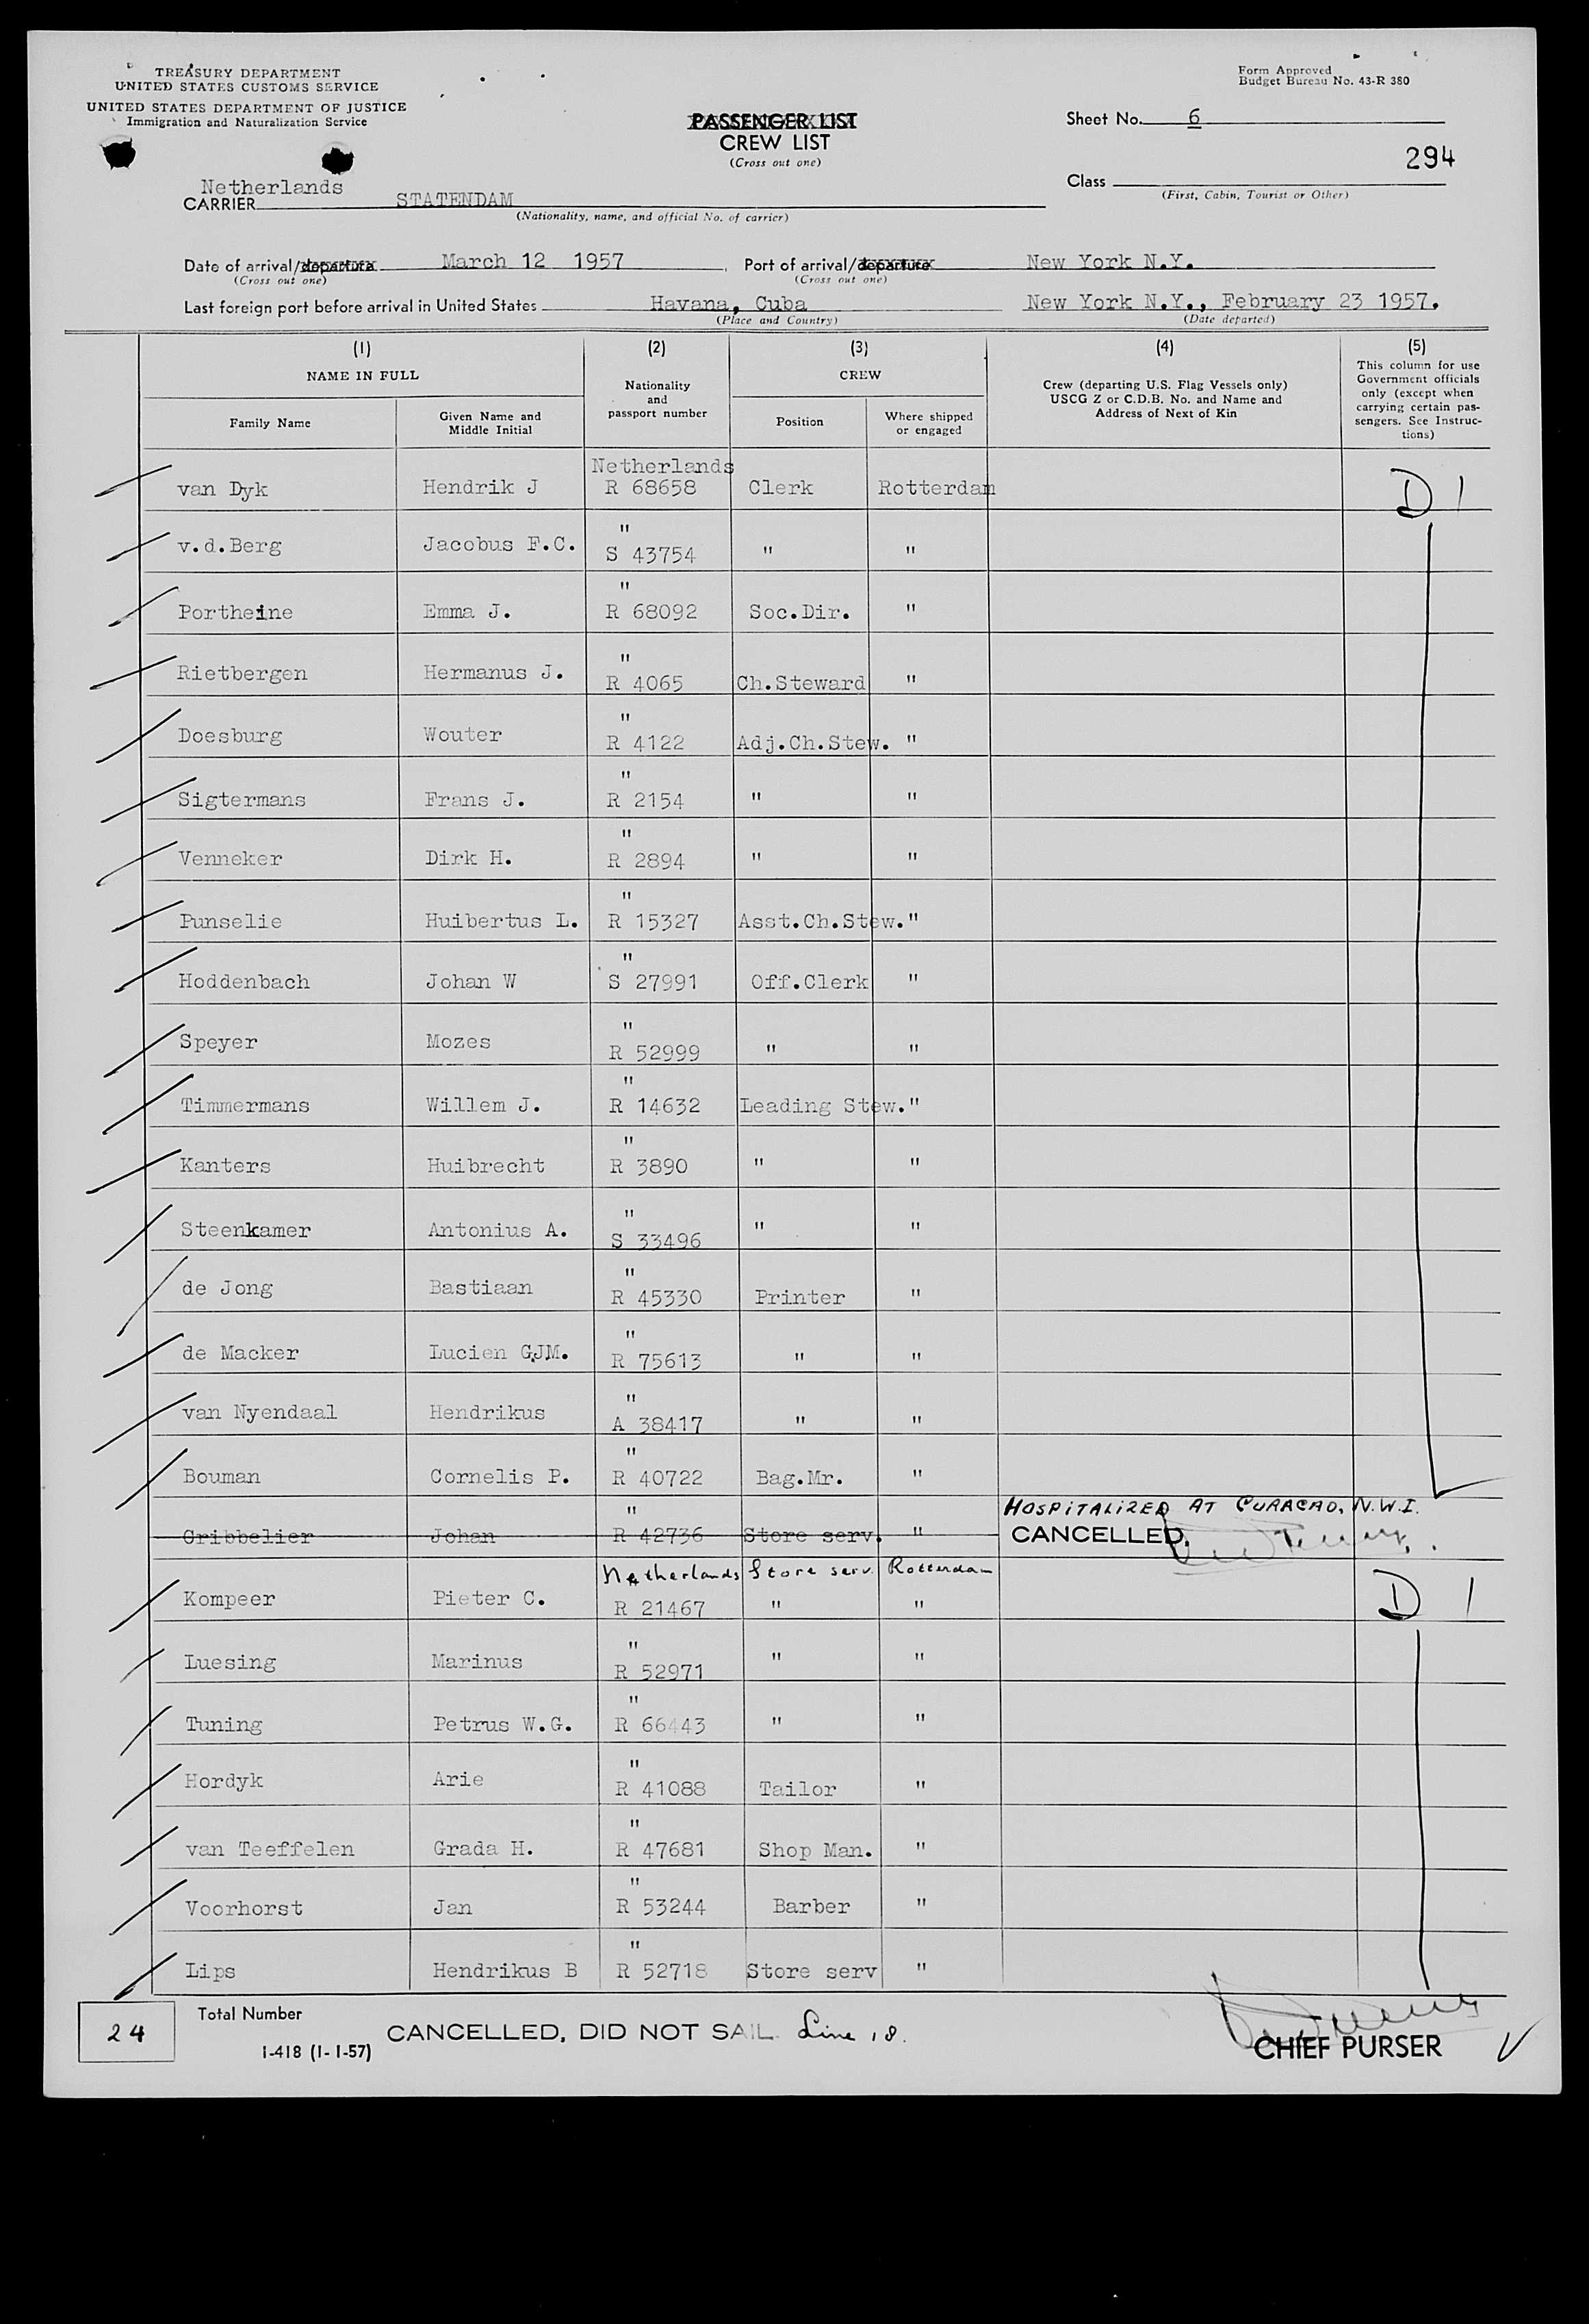 TREASURY DEPARTMENT
UNITED STATES CUSTOMS SERVICE
UNITED STATES DEPARTMENT OF JUSTICE
Immigration and Naturalization Service
Form Approved
Budget Bureau No. 43-R 380
PASSENGER LIST
CREW LIST
(Cross out one)
Sheet No. 6
294
Class
(First, Cabin, Tourist or Other)
Netherlands
CARRIER STATENDAM
(Nationality, name, and official No. of carrier)
Date of arrival/departure March 12 1957 , Port of arrival/departure New York N.Y.
(Cross out one) (Cross out one)
Last foreign port before arrival in United States Havana, Cuba New York N.Y., February 23 1957.
(Place and Country) (Date departed)
(1) (2) (3) (4) (5)
NAME IN FULL
Family Name
Given Name and
Middle Initial
Nationality
and
passport number
CREW
Position
Where shipped
or engaged
Crew (departing U.S. Flag Vessels only)
USCG Z or C.D.B. No. and Name and
Address of Next of Kin
This column for use
Government officials
only (except when
carrying certain pas-
sengers. See Instruc-
tions)
Netherlands
van Dyk Hendrik J R 68658 Clerk Rotterdam D 1
"
v.d.Berg Jacobus F.C. S 43754 " "
"
Portheine Emma J. R 68092 Soc.Dir. "
"
Rietbergen Hermanus J. R 4065 Ch.Steward "
"
Doesburg Wouter R 4122 Adj.Ch.Stew. "
"
Sigtermans Frans J. R 2154 " "
"
Venneker Dirk H. R 2894 " "
"
Punselie Huibertus L. R 15327 Asst.Ch.Stew. "
"
Hoddenbach Johan W S 27991 Off.Clerk "
"
Speyer Mozes R 52999 " "
"
Timmermans Willem J. R 14632 Leading Stew. "
"
Kanters Huibrecht R 3890 " "
"
Steenkamer Antonius A. S 33496 " "
"
de Jong Bastiaan R 45330 Printer "
"
de Macker Lucien GJM. R 75613 " "
"
van Nyendaal Hendrikus A 38417 " "
"
Bouman Cornelis P. R 40722 Bag.Mr. "
" HOSPITALIZED AT CURACAO, N.W.I.
Gribbelier Johan R 42736 Store serv. " CANCELLED.
Netherlands Store serv. Rotterdam
Kompeer Pieter C. R 21467 " " D 1
"
Luesing Marinus R 52971 " "
"
Tuning Petrus W.G. R 66443 " "
"
Hordyk Arie R 41088 Tailor "
"
van Teeffelen Grada H. R 47681 Shop Man. "
"
Voorhorst Jan R 53244 Barber "
"
Lips Hendrikus B R 52718 Store serv "
24 Total Number
CANCELLED, DID NOT SAIL Line 18.
I-418 (1-1-57)
CHIEF PURSER